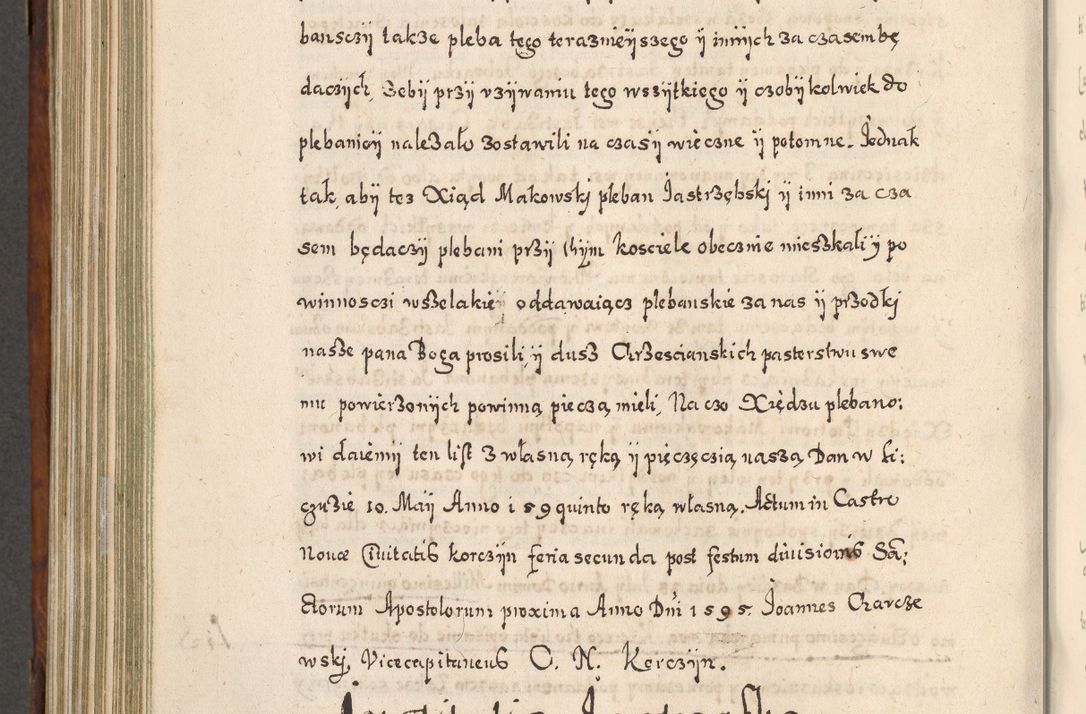 bansczÿ także pleba tego terazniejszego ÿ innÿch za czasem bę
daczÿch, żebÿ przÿ vzÿwaniu tego wszÿtkiego ÿ czobÿkolwiek do
plebaniey należało zostawili na czasÿ wieczne ÿ potomne. Jednak
tak, abÿ tez Xiądz Makowskj pleban Jastrzębskj ÿ inni za cza
sem będaczÿ plebani przÿ thÿm kosciele obecznie mieszkali ÿ po
winnosczi wszelakie oddawaiącz plebanskie za nas ÿ przodkj
nasze pana Boga prosili, ÿ dusz Chrzescianskich pasterstwu swe
mu powierzonÿch powinną pieczą mieli, Na czo Xiędzu plebano:
wi daiemÿ ten list z własną ręką ÿ pięczęczią naszą Dan w Li:
czuzie 10. Maÿ Anno 159 quinto ręką własną. Actum in Castro
Nouæ Ciuitatis korczÿn feria secunda post festum diuisionis Sā:
ctorum Apostolorum proxima Anno Dni 1595 Joannes Czarcze
wskj, Vicecapitaneus C. N. Korczÿn.